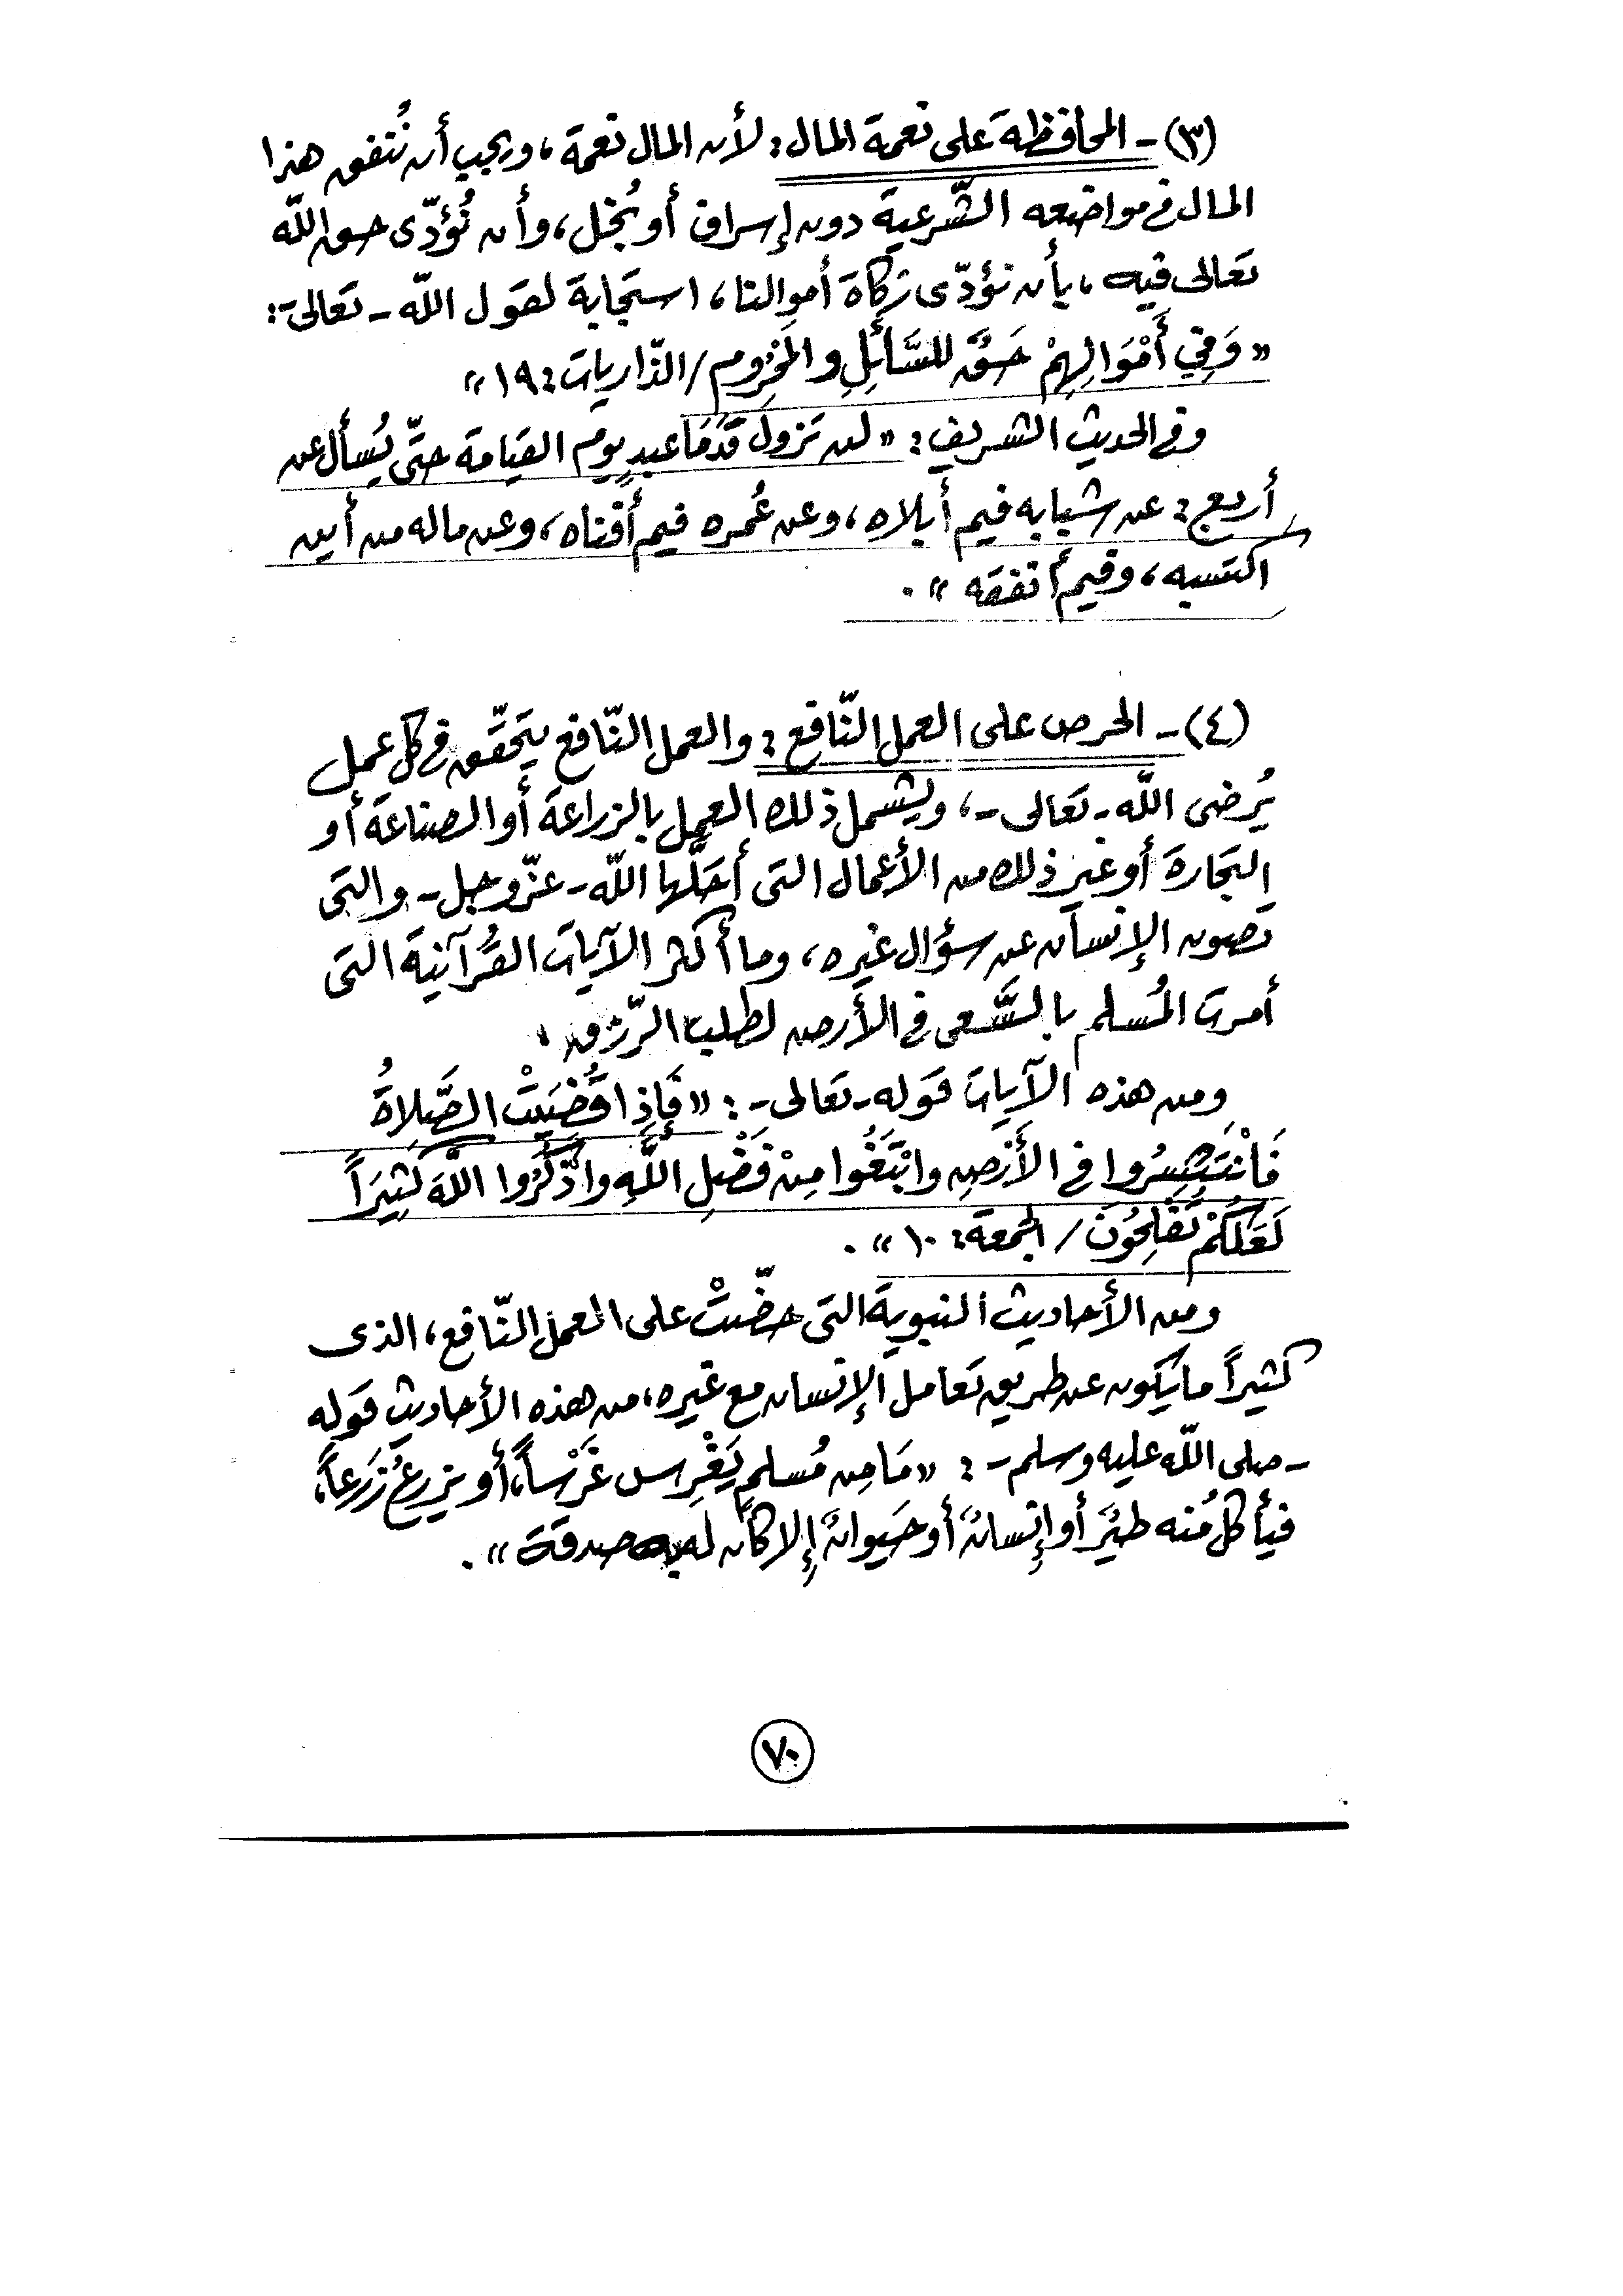 (٣) - المحافظة على نعمة المال: لأن المال نعمة، ويجب أن نُنفق هذا
المال في مواضعه الشّرعية دون إسراف أو بُخل، وأن نُؤدّى حق اللّه
تعالى فيه، بأن نؤدّى زكاة أموالنا، استجابة لقول اللّه - تعالى -:
« وَفِي أَمْوَالِهِمْ حَقٌّ للسَّائِلِ والمَحْرُوم / الذّاريات: ١٩ »
وفي الحديث الشريف: « لن تزول قَدَمَا عبدٍ يوم القيامة حتّى يُسأل عن
أربع: عن شبابه فيم أبلاه، وعن عُمره فيم أفناه، وعن ماله من أين
اكتسبه، وفيم أنفقه ».
(٤) - الحرص على العمل النّافع: والعمل النّافع يتحقّق في كل عمل
يُرضى اللّه - تعالى -، ويشمل ذلك العمل بالزراعة أو الصناعة أو
التجارة أو غير ذلك من الأعمال التى أحَلّها اللّه - عزّ وجل - والتى
تصون الإنسان عن سؤال غيره، وما أكثر الآيات القُرآنية التى
أمرت المُسلم بالسَّعى في الأرض لطلب الرّزق.
ومن هذه الآيات قوله - تعالى -: « فَإِذَا قُضِيَتْ الصَّلاةُ
فَانْتَشِرُوا في الأَرْضِ وابْتَغُوا مِنْ فَضْلِ اللَّهِ واذْكُرُوا اللَّهَ كَثِيَراً
لَعَلَّكُمْ تُفْلِحُونَ / الجمعة: ١٠ ».
ومن الأحاديث النبوية التى حضّتْ على العمل النّافع، الذى
كثيراً ما يكون عن طريق تعامل الإنسان مع غيره، من هذه الأحاديث قوله
- صلى اللّه عليه وسلم -: « مَا مِن مُسلمٍ يَغْرِس غَرْساً، أو يزرعُ زَرَعاً،
فيأكلُ منه طيْرٌ أو إنسانٌ أو حَيوانٌ إلا كان له به صدقة ».
٧٠